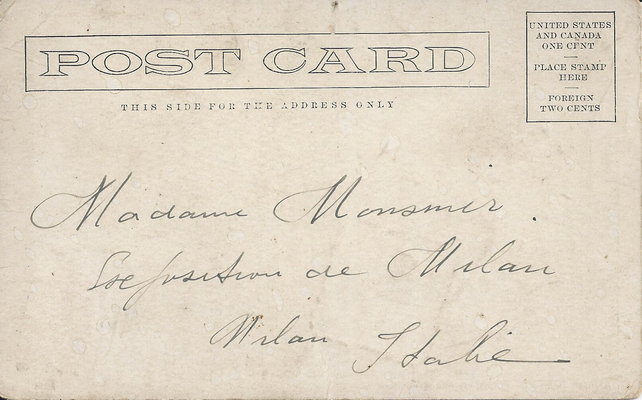 POST CARD
THIS SIDE FOR THE ADDRESS ONLY
UNITED STATES
AND CANADA
ONE CENT
PLACE STAMP
HERE
FOREIGN
TWO CENTS
Madame Monsmer
Exposition de Milan
Milan Italie